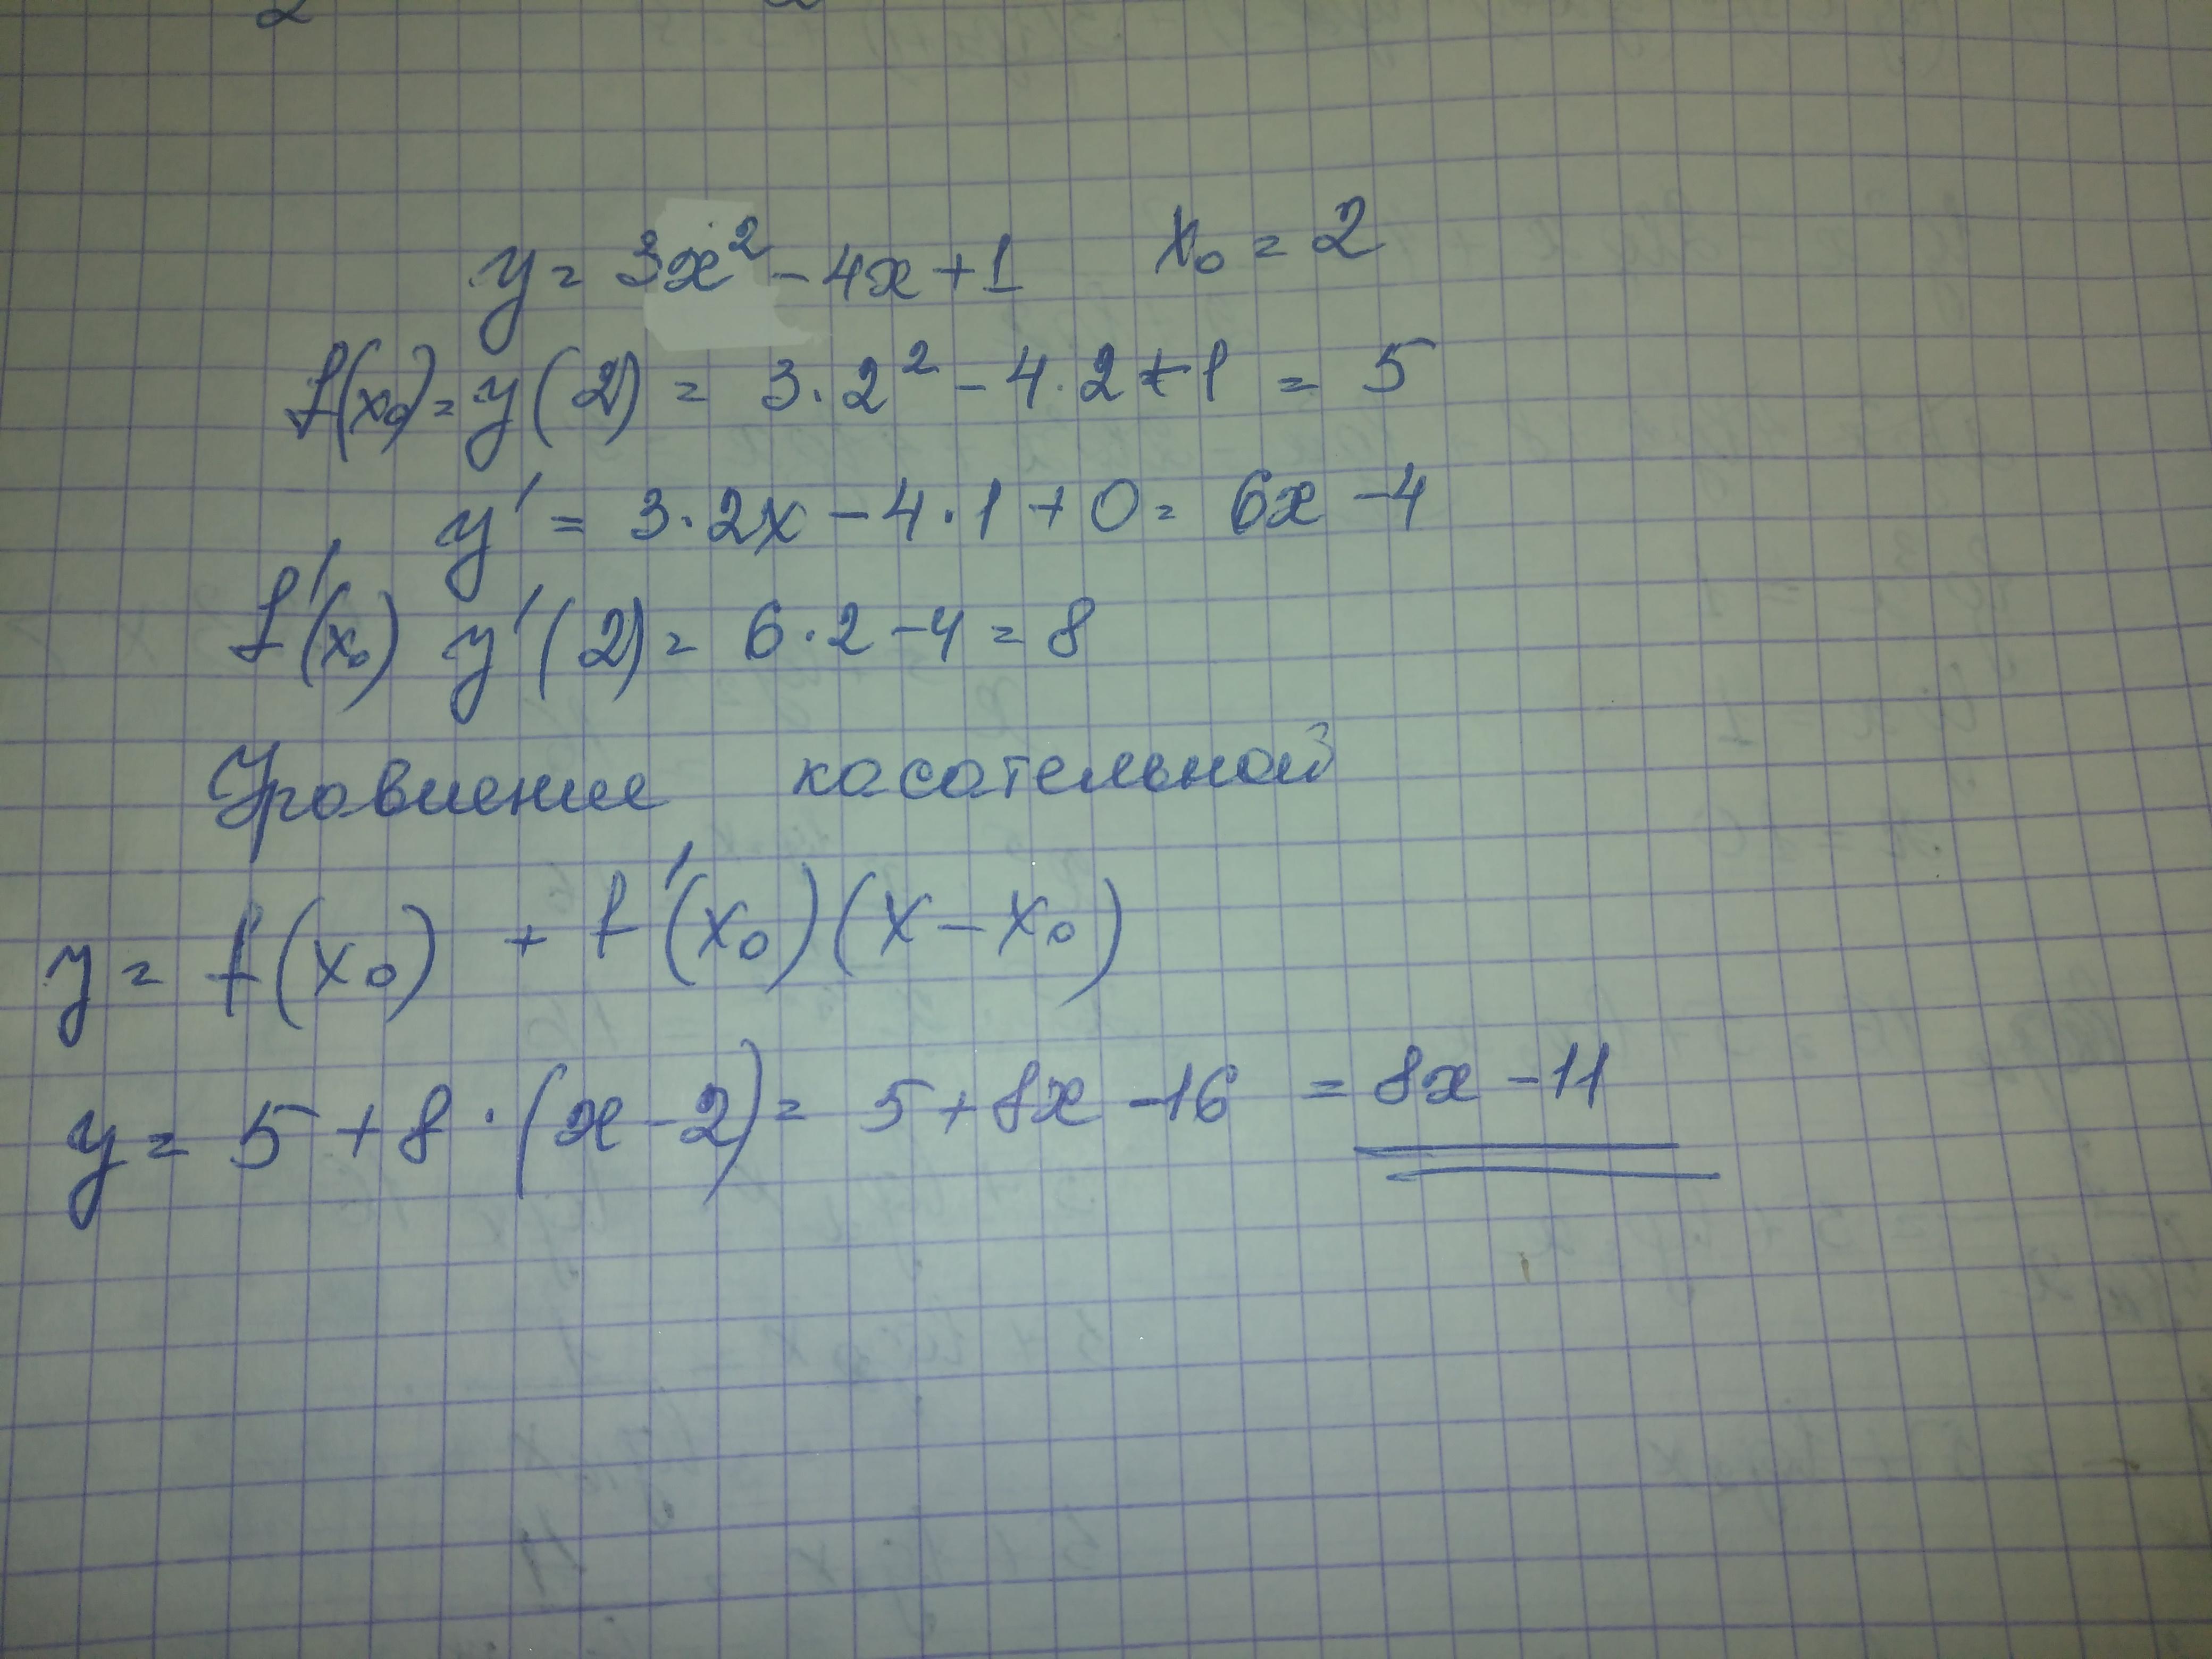 y = 3x² - 4x + 1 x₀ = 2
f(x₀) = y(2) = 3·2² - 4·2 + 1 = 5
y' = 3·2x - 4·1 + 0 = 6x - 4
f'(x₀) y'(2) = 6·2 - 4 = 8
Уравнение касательной
y = f(x₀) + f'(x₀)(x - x₀)
y = 5 + 8·(x - 2) = 5 + 8x - 16 = 8x - 11